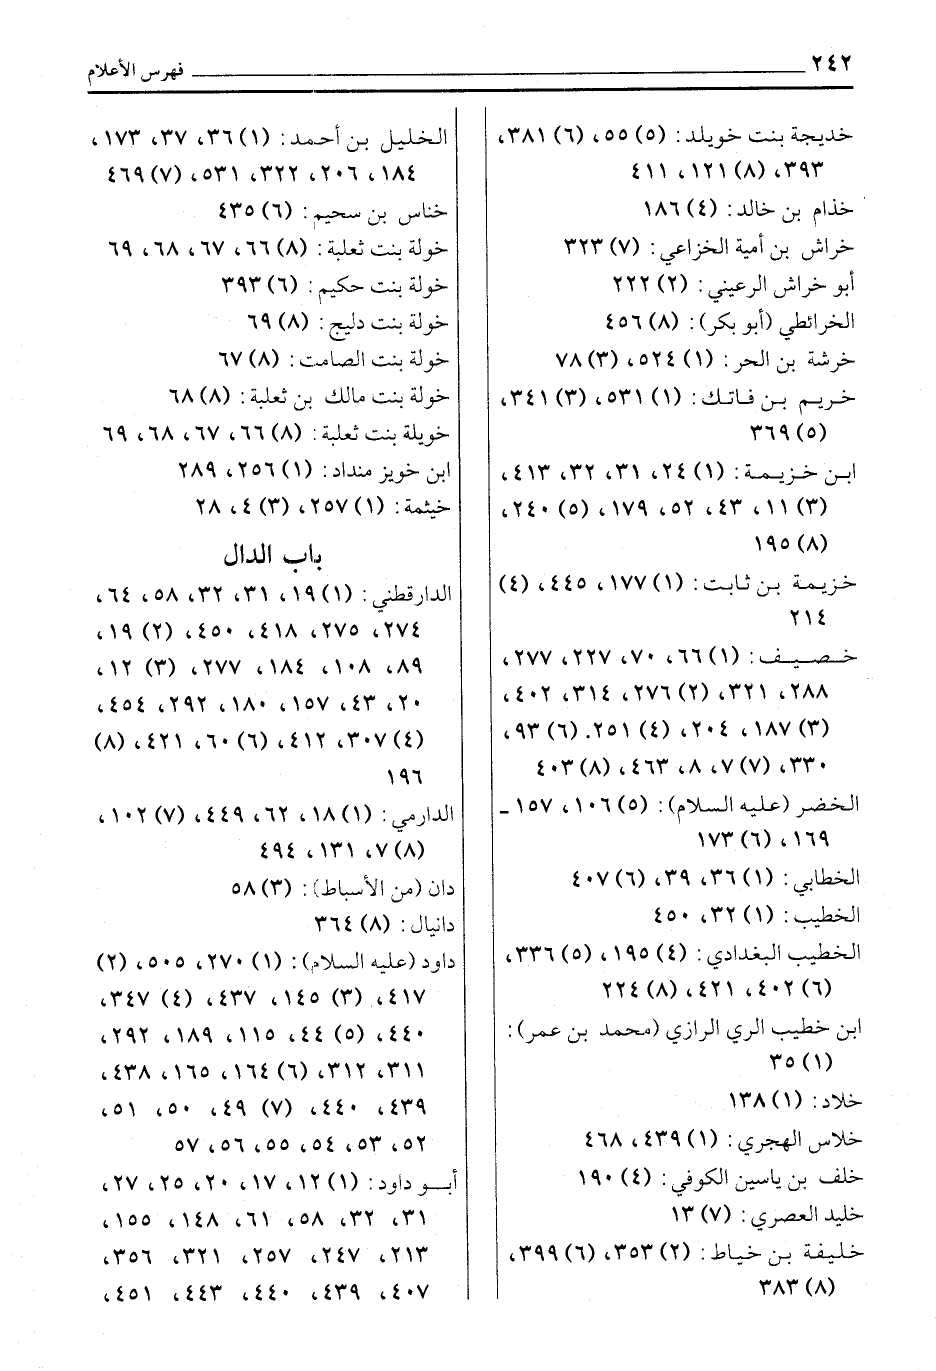 ٢٤٢ فهرس الأعلام
خديجة بنت خويلد: (٥) ٥٥، (٦) ٣٨١،
٣٩٣، (٨) ١٢١، ٤١١
خذام بن خالد: (٤) ١٨٦
خراش بن أمية الخزاعي: (٧) ٣٢٣
أبو خراش الرعيني: (٢) ٢٢٢
الخرائطي (أبو بكر): (٨) ٤٥٦
خرشة بن الحر: (١) ٥٢٤، (٣) ٧٨
خريم بن فاتك: (١) ٥٣١، (٣) ٣٤١،
(٥) ٣٦٩
ابن خزيمة: (١) ٢٤، ٣١، ٣٢، ٤١٣،
(٣) ١١، ٤٣، ٥٢، ١٧٩، (٥) ٢٤٠،
(٨) ١٩٥
خزيمة بن ثابت: (١) ١٧٧، ٤٤٥، (٤)
٢١٤
خصيف: (١) ٦٦، ٧٠، ٢٢٧، ٢٧٧،
٢٨٨، ٣٢١، (٢) ٢٧٦، ٣١٤، ٤٠٢،
(٣) ١٨٧، ٢٠٤، (٤) ٢٥١. (٦) ٩٣،
٣٣٠، (٧) ٧، ٨، ٤٦٣، (٨) ٤٠٣
الخضر (عليه السلام): (٥) ١٠٦، ١٥٧ -
١٦٩، (٦) ١٧٣
الخطابي: (١) ٣٦، ٣٩، (٦) ٤٠٧
الخطيب: (١) ٣٢، ٤٥٠
الخطيب البغدادي: (٤) ١٩٥، (٥) ٣٣٦،
(٦) ٤٠٢، ٤٢١، (٨) ٢٢٤
ابن خطيب الري الرازي (محمد بن عمر):
(١) ٣٥
خلاد: (١) ١٣٨
خلاس الهجري: (١) ٤٣٩، ٤٦٨
خلف بن ياسين الكوفي: (٤) ١٩٠
خليد العصري: (٧) ١٣
خليفة بن خياط: (٢) ٣٥٣، (٦) ٣٩٩،
(٨) ٣٨٣
الخليل بن أحمد: (١) ٣٦، ٣٧، ١٧٣،
١٨٤، ٢٠٦، ٣٢٢، ٥٣١، (٧) ٤٦٩
خناس بن سحيم: (٦) ٤٣٥
خولة بنت ثعلبة: (٨) ٦٦، ٦٧، ٦٨، ٦٩
خولة بنت حكيم: (٦) ٣٩٣
خولة بنت دليج: (٨) ٦٩
خولة بنت الصامت: (٨) ٦٧
خولة بنت مالك بن ثعلبة: (٨) ٦٨
خويلة بنت ثعلبة: (٨) ٦٦، ٦٧، ٦٨، ٦٩
ابن خويز منداد: (١) ٢٥٦، ٢٨٩
خيثمة: (١) ٢٥٧، (٣) ٤، ٢٨
باب الدال
الدارقطني: (١) ١٩، ٣١، ٣٢، ٥٨، ٦٤،
٢٧٤، ٢٧٥، ٤١٨، ٤٥٠، (٢) ١٩،
٨٩، ١٠٨، ١٨٤، ٢٧٧، (٣) ١٢،
٢٠، ٤٣، ١٥٧، ١٨٠، ٢٩٢، ٤٥٤،
(٤) ٣٠٧، ٤١٢، (٦) ٦٠، ٤٢١، (٨)
١٩٦
الدارمي: (١) ١٨، ٦٢، ٤٤٩، (٧) ١٠٢،
(٨) ٧، ١٣١، ٤٩٤
دان (من الأسباط): (٣) ٥٨
دانيال: (٨) ٣٦٤
داود (عليه السلام): (١) ٢٧٠، ٥٠٥، (٢)
٤١٧، (٣) ١٤٥، ٤٣٧، (٤) ٣٤٧،
٤٤٠، (٥) ٤٤، ١١٥، ١٨٩، ٢٩٢،
٣١١، ٣١٢، (٦) ١٦٤، ١٦٥، ٤٣٨،
٤٣٩، ٤٤٠، (٧) ٤٩، ٥٠، ٥١،
٥٢، ٥٣، ٥٤، ٥٥، ٥٦، ٥٧
أبو داود: (١) ١٢، ١٧، ٢٠، ٢٥، ٢٧،
٣١، ٣٢، ٥٨، ٦١، ١٤٨، ١٥٥،
٢١٣، ٢٤٧، ٢٥٧، ٣٢١، ٣٥٦،
٤٠٧، ٤٣٩، ٤٤٠، ٤٤٣، ٤٥١،